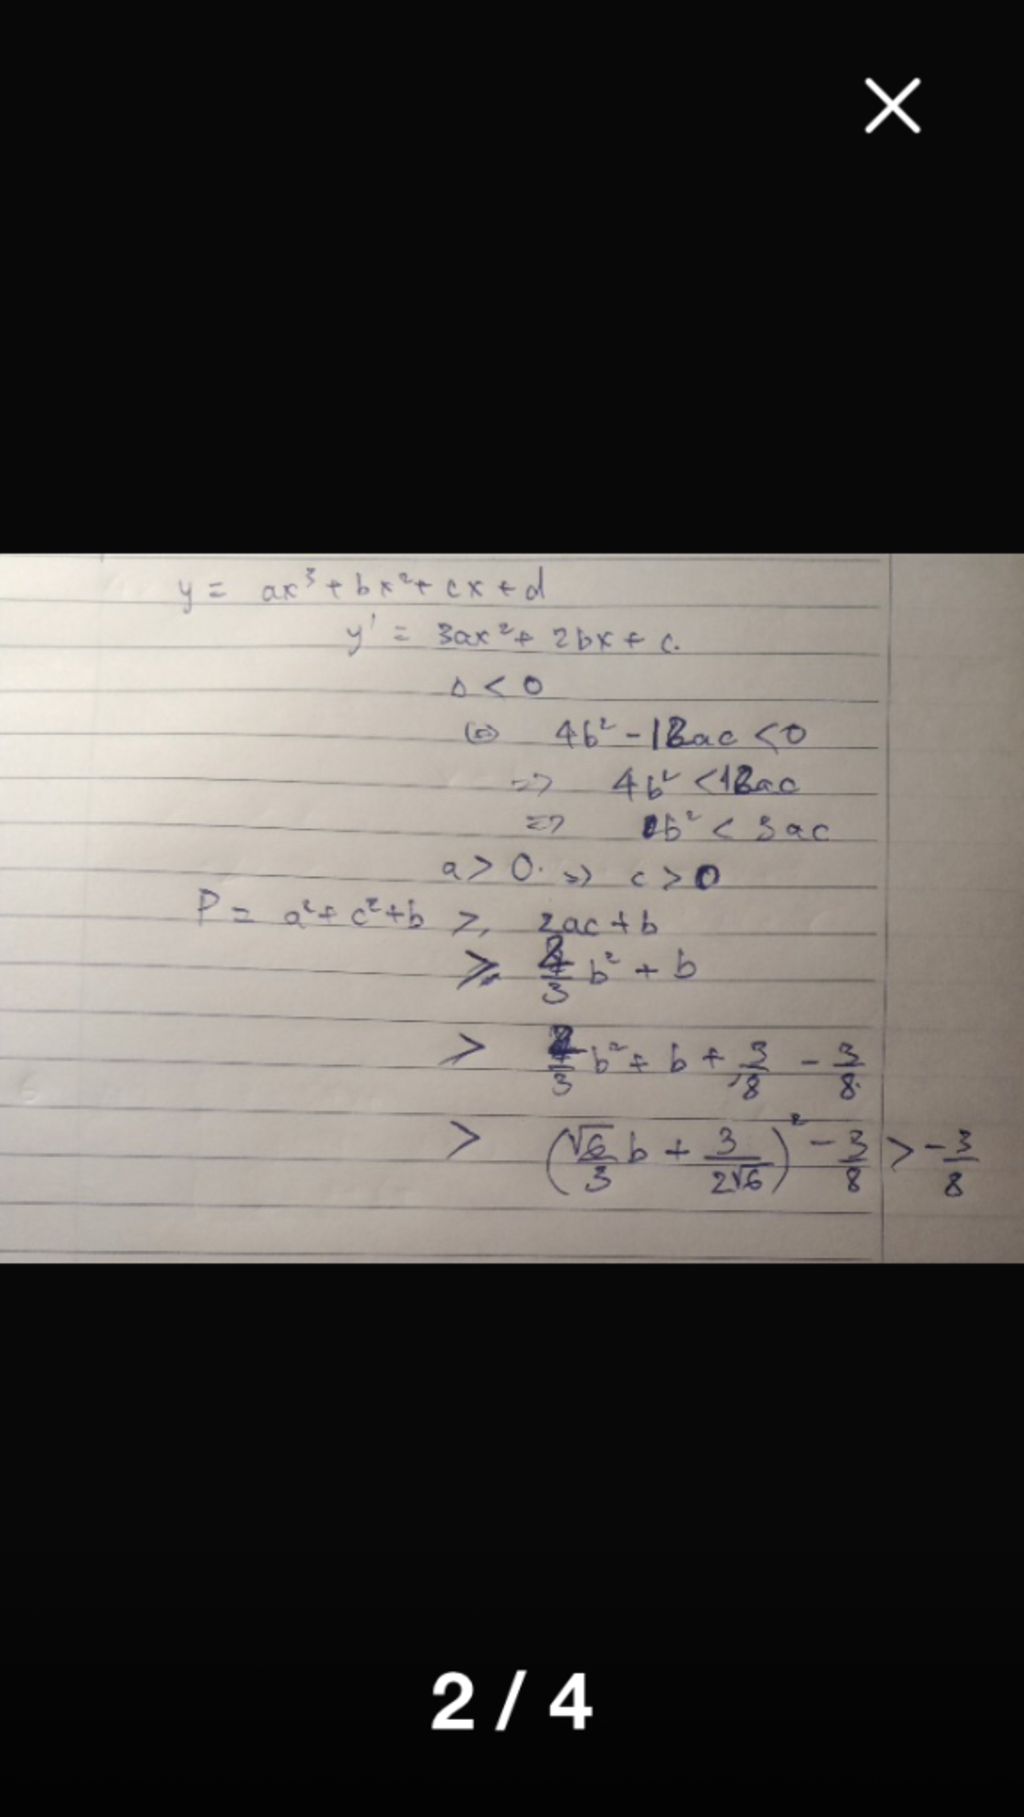 y = ax³ + bx² + cx + d
y' = 3ax² + 2bx + c.
Δ < 0
⇔ 4b² - 12ac < 0
=> 4b² < 12ac
=> b² < 3ac
a > 0. => c > 0
P = a² + c² + b ≥ 2ac + b
≥ 2/3 b² + b
> 2/3 b² + b + 3/8 - 3/8
> (√6/3 b + 3/2√6)² - 3/8 > -3/8
2 / 4